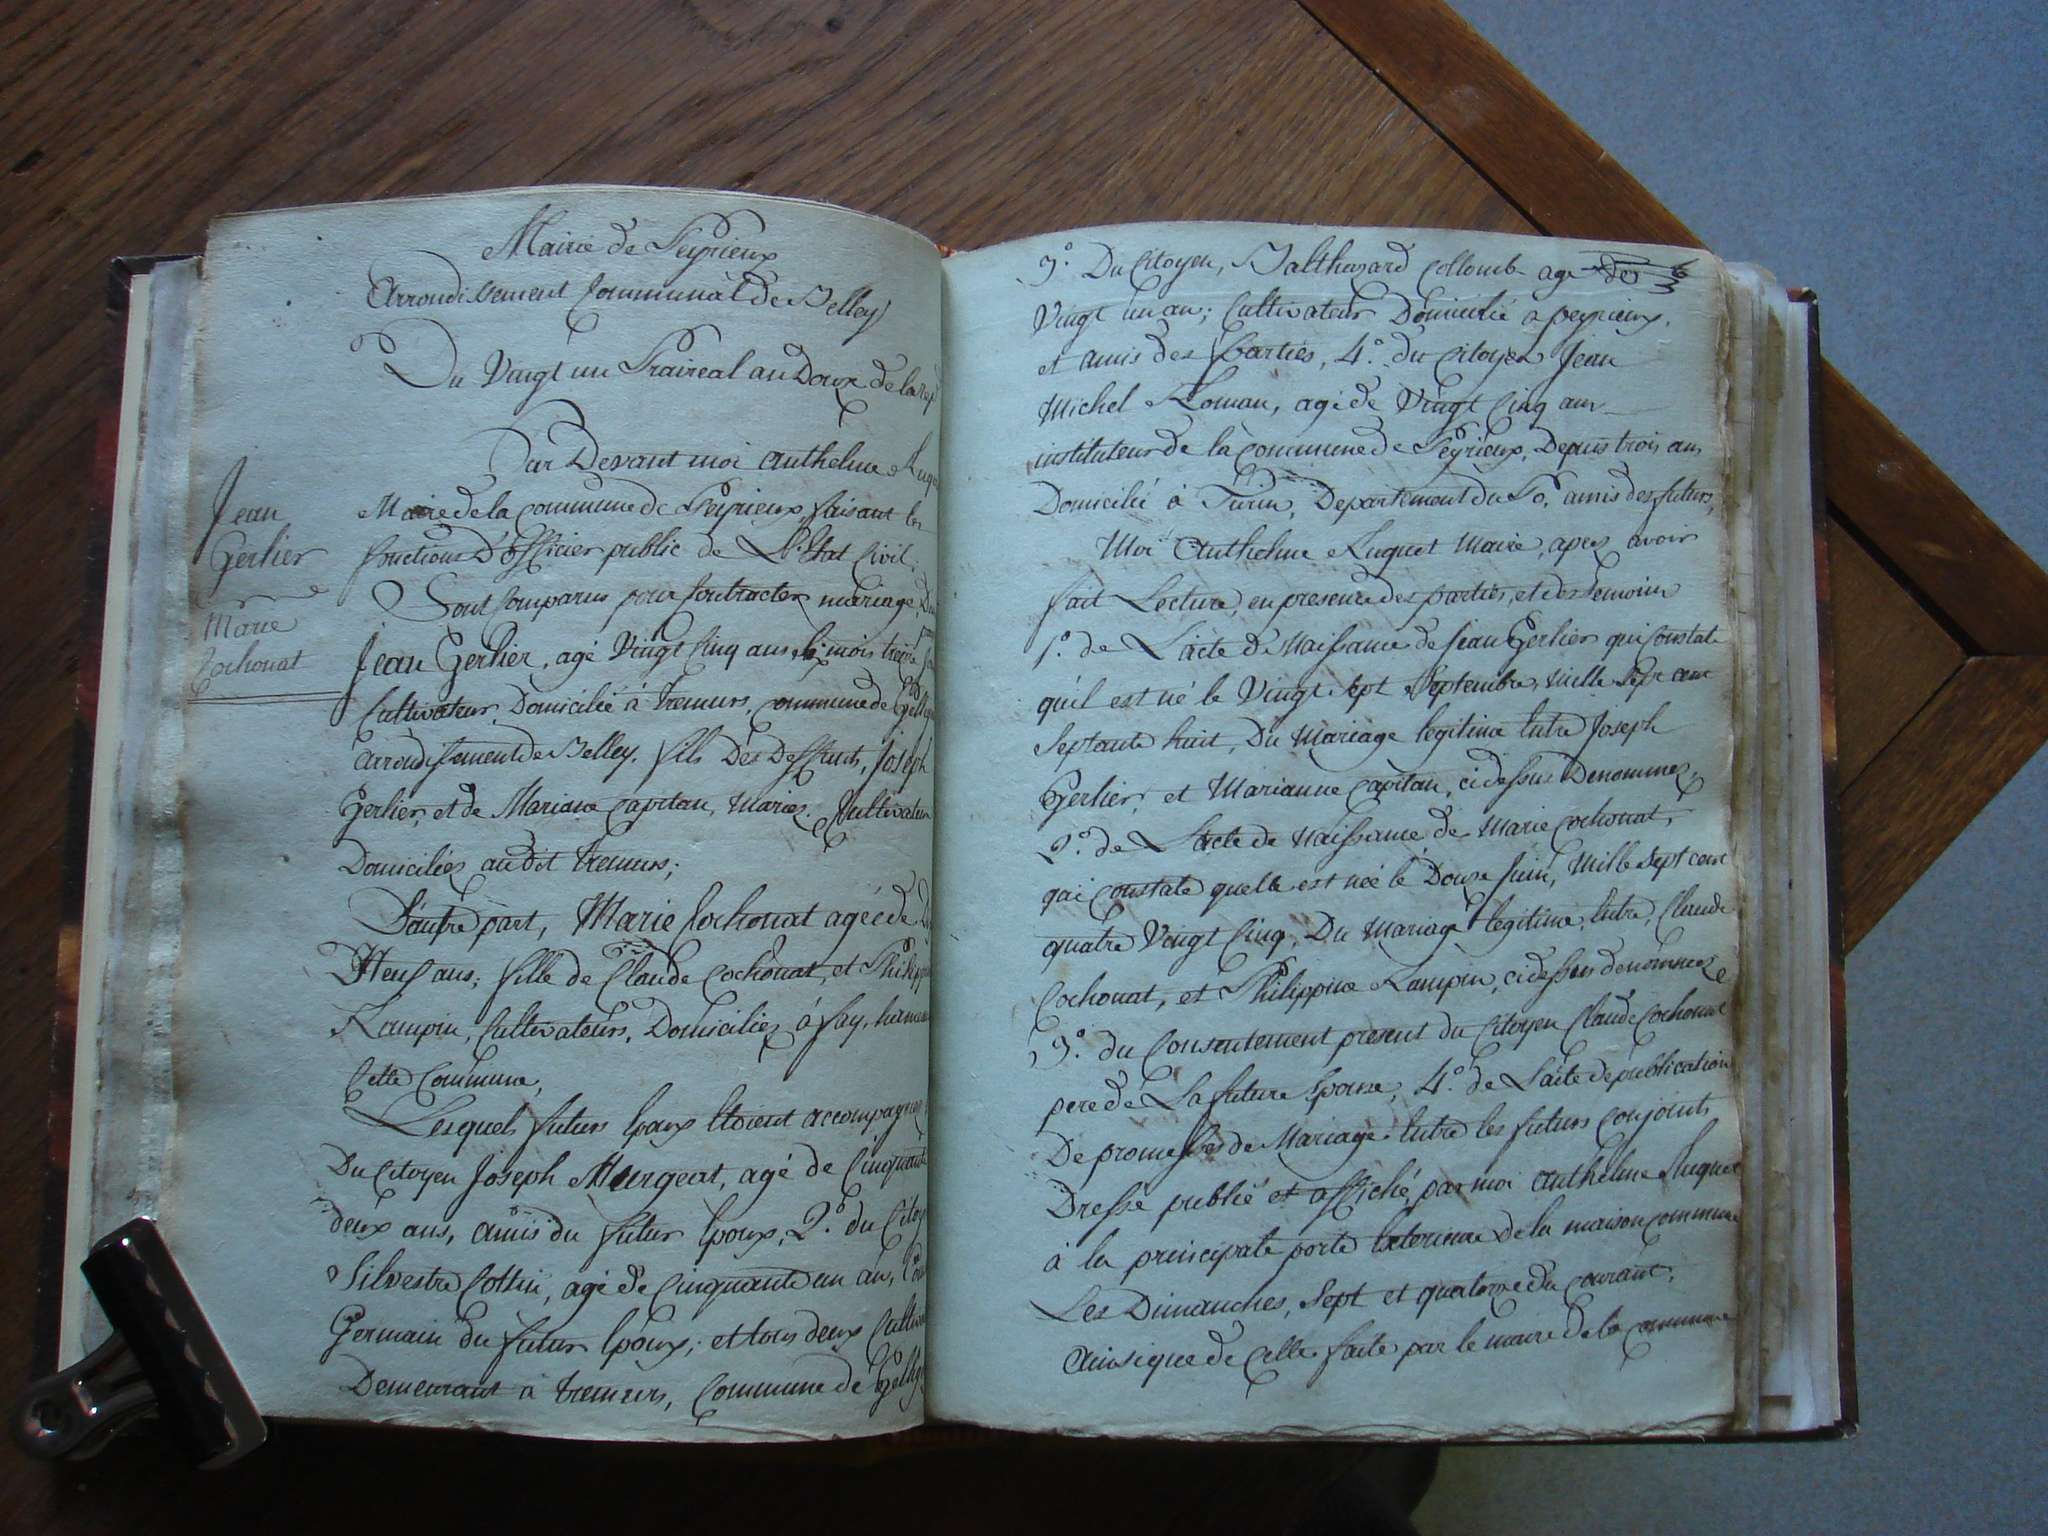 Mairie de Peyrieux
Arrondissement Communal de Belley
Du Vingt un Prairéal an Douze de la rep
Par Devant moi Anthelme Luquet
Maire de la commune de Peyrieux, faisant les
fonctions D'officier public de L'État Civil.
Sont Comparus pour Contracter mariage, D'une
part
Jean Gerlier, agé Vingt Cinq ans, mois treize
Cultivateur, Domicilié à tremurs, commune de
arrondissement de Belley, fils Des Deffunts, Joseph
Gerlier, et de Mariane Capitan, Mariez, Cultivateurs
Domiciliez au dit tremurs;
D'autre part, Marie Cochonat agée de Dix
Neuf ans; fille de Claude Cochonat, et Philippine
Rampin, Cultivateurs, Domiciliez à fay, hameau
Cette Commune,
Lesquels futurs Epoux Etoient accompagnez
Du Citoyen Joseph Murgeat, agé de Cinquante
deux ans, amis du futur Epoux, 2.° du Citoyen
Silvestre Cottin, agé de Cinquante un an,
Germain du futur Epoux; et tous deux Cultiv
Demeurant à tremurs, Commune de
Jean
Gerlier
Marie
Cochonat
3.° Du Citoyen, Balthazard Collomb agé de
Vingt un an; Cultivateur Domicilié à peyrieux,
et amis des parties, 4.° du Citoyen Jean
Michel Roman, agé de Vingt Cinq ans
instituteur de la commune de Peyrieux, Depuis trois ans
Domicilié à Turin, Departement du Po, amis des futurs,
Moi Anthelme Luquet Maire, apres avoir
fait Lecture, en presence des parties, et des temoins
1.° de L'acte de Naissance de Jean Gerlier qui Constate
qu'il est né le Vingt Sept Septembre, Mille Sept cent
Septante huit, Du Mariage legitime Entre Joseph
Gerlier, et Marianne Capitan, ci dessus Denommez,
2.° de L'acte de Naissance de Marie Cochonat,
qui Constate quelle est née le Douze Juin, Mille Sept cent
quatre Vingt Cinq, Du Mariage legitime, Entre, Claude
Cochonat, et Philippine Rampin, ci dessus denommez
3.° du Consentement present du Citoyen Claude Cochonat
pere de La future Epouse, 4.° de L'acte de publication
De promesses de Mariage Entre les futurs conjoints
Dressé publié et affiché, par moi Anthelme Luquet
à la principale porte Exterieure de la maison commune
Les Dimanches, Sept et quatorze du Courant,
Ainsi que de Celle faite par le maire de la commune